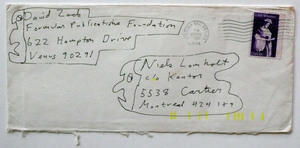 David Zack
Formular Publications Foundation
622 Hampton Drive
Venus 90291
Niels Lomholt
c/o Kantor
5538 Cartier
Montreal H2H 1X9